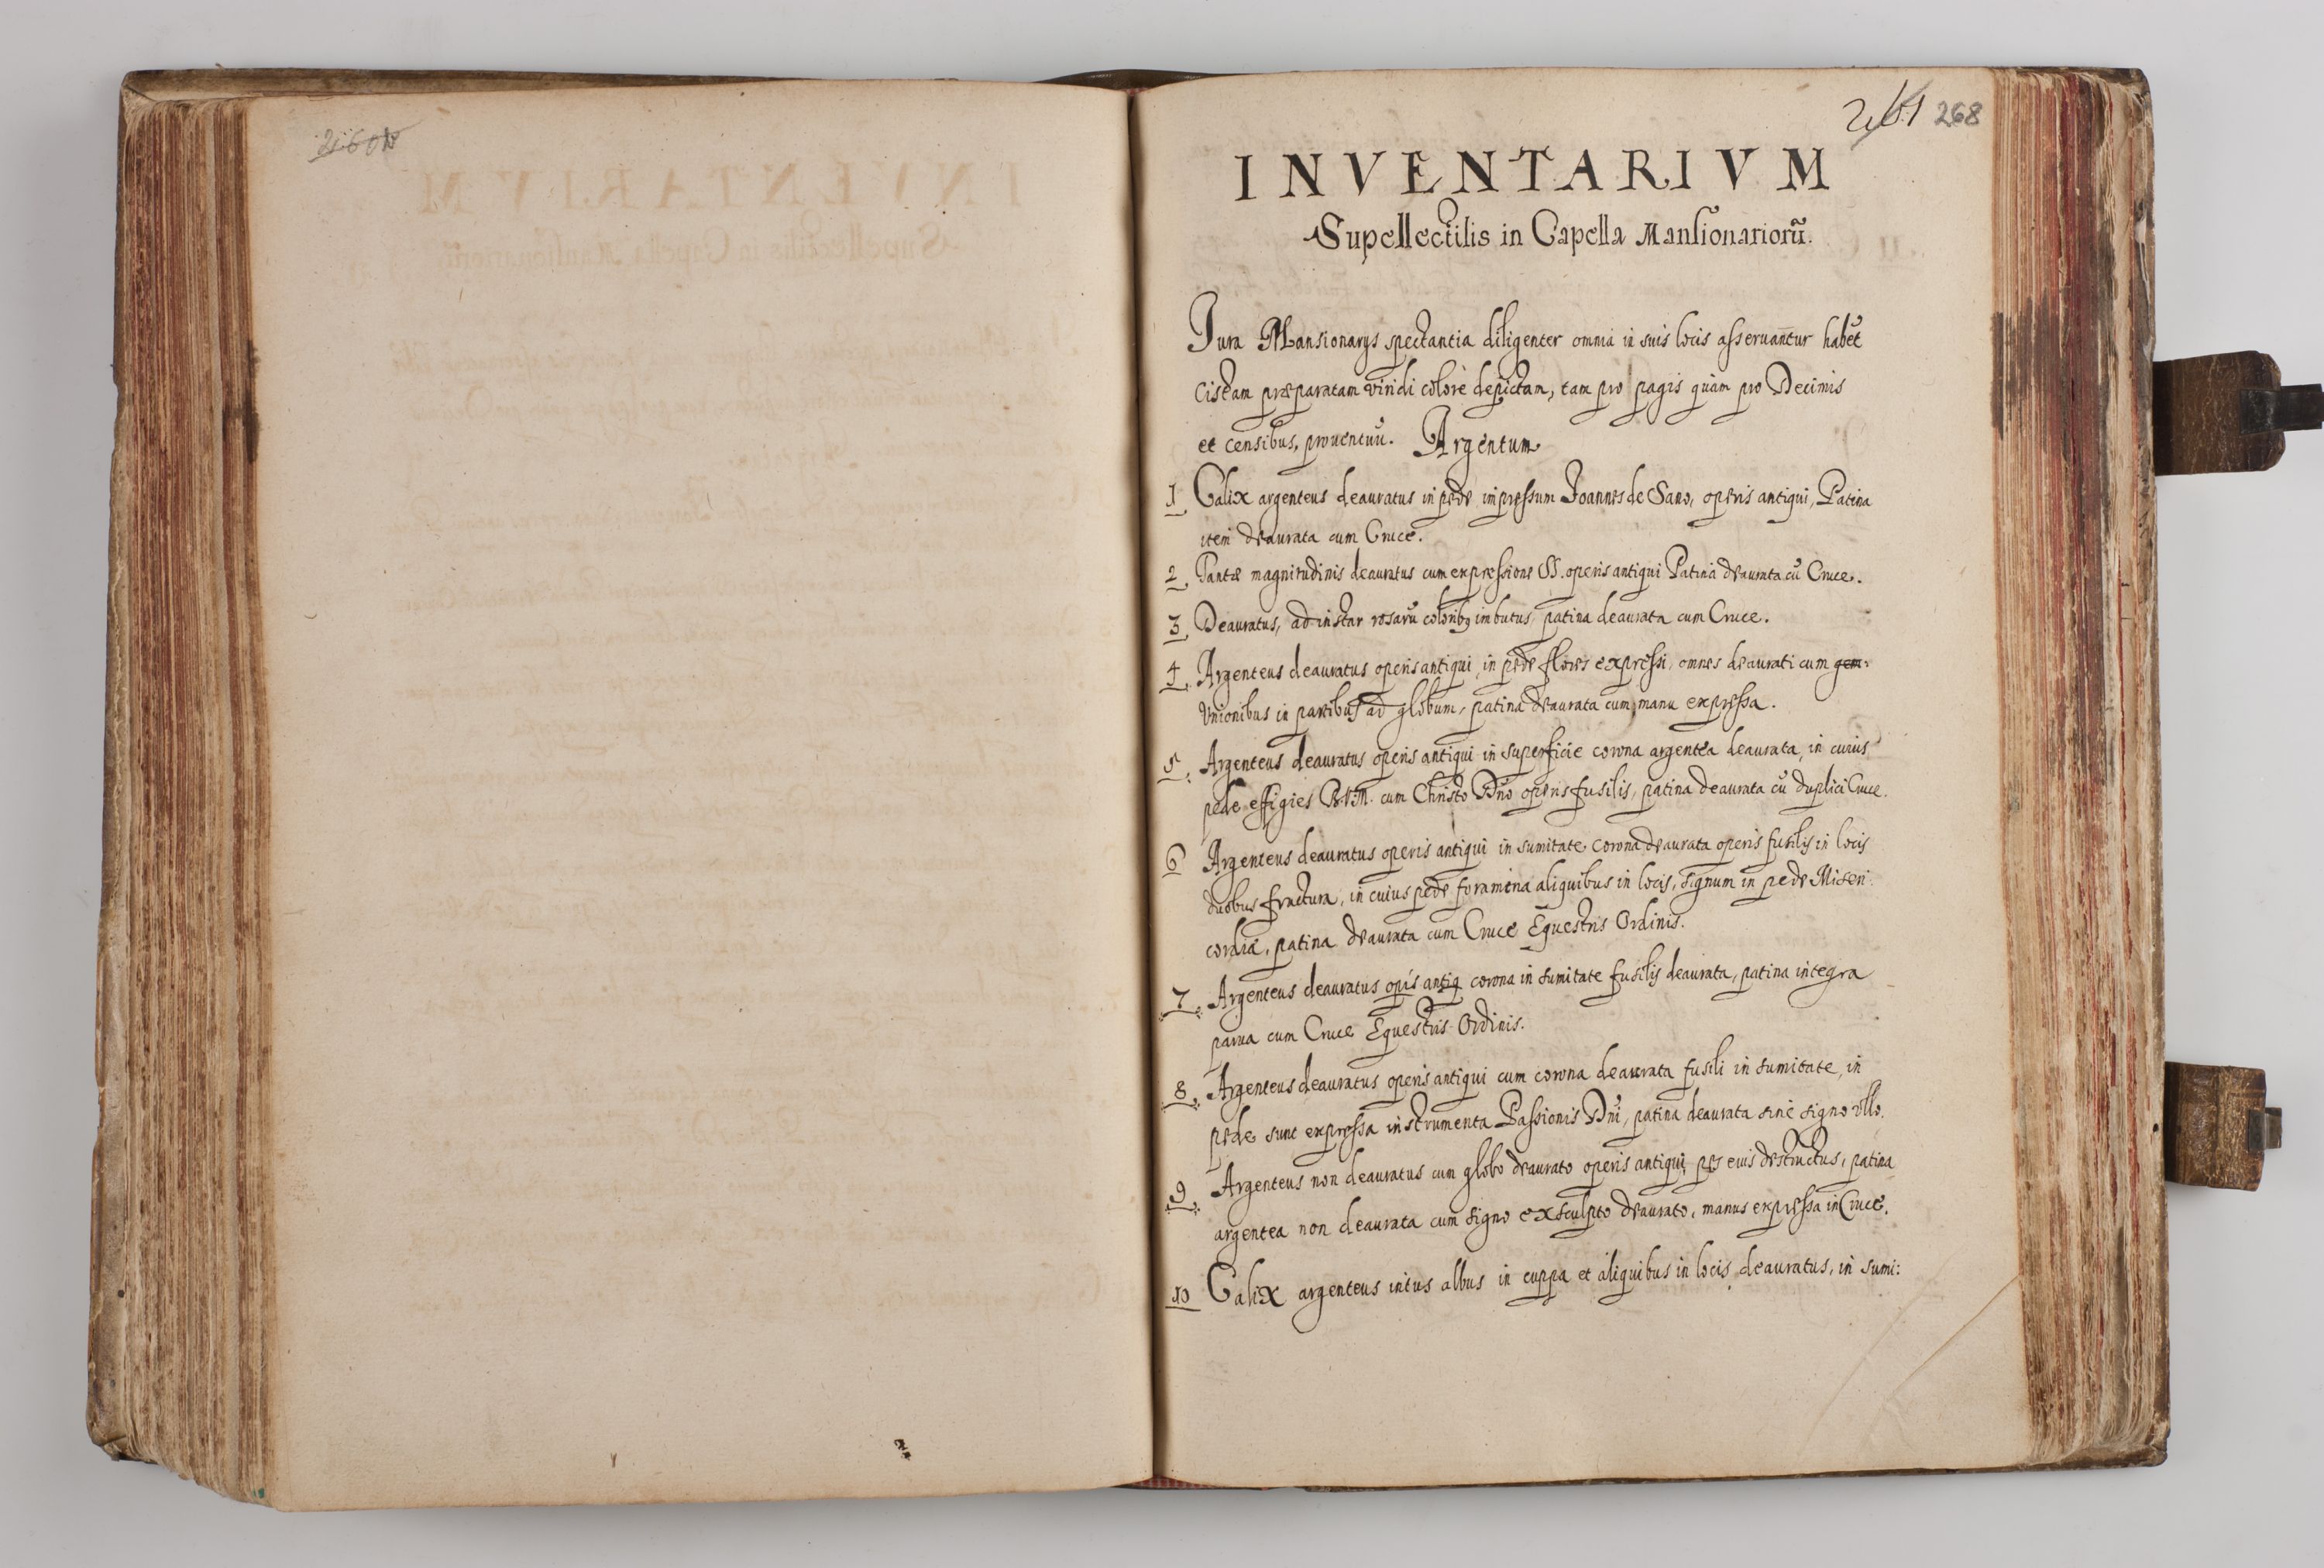 260v
261 268
INVENTARIVM
Supellectilis in Capella Mansionariorũ.
Jura Mansionarys spectantia diligenter omnia in suis locis asseruantur habẽt
Cistam præparatam viridi colore depictam, tam pro pagis quàm pro Decimis
et censibus, prouentuũ. Argentum
1 Calix argenteus deauratus in pede inpressum Joannes de Sano, operis antiqui, Patina
item deaurata cum Cruce.
2. Tantæ magnitudinis deauratus cum expressione SS. operis antiqui Patina deaurata cũ Cruce.
3. Deauratus, ad instar rosarũ coloribꝫ imbutus, patina deaurata cum Cruce.
4. Argenteus deauratus operis antiqui, in pede flores expressi, omnes deaurati cum gem:
Vnionibus in partibus ad globum, patina deaurata cum manu expressa.
5. Argenteus deauratus operis antiqui in superficie corona argentea deaurata, in cuius
pede effigies B.V.M. cum Christo Dño operis fusilis, patina deaurata cũ duplici Cruce.
6 Argenteus deauratus operis antiqui in sumitate corona deaurata operis fusilis in locis
duobus fractura, in cuius pede foramina aliquibus in locis, signum in pede Miseri:
cordiæ, patina deaurata cum Cruce Equestris Ordinis.
7. Argenteus deauratus opis antiq corona in sumitate fusilis deaurata, patina integra
parua cum Cruce Equestris Ordinis.
8. Argenteus deauratus operis antiqui cum corona deaurata fusili in sumitate, in
pede sunt expressa instrumenta Passionis Dñi, patina deaurata sine signo vllo.
9. Argenteus non deauratus cum globo deaurato operis antiqui, pes eius destructus, patina
argentea non deaurata cum signo exsculpto deaurato, manus expressa in Cruce.
10 Calix argenteus intus albus in cuppa et aliquibus in locis deauratus, in sumi: